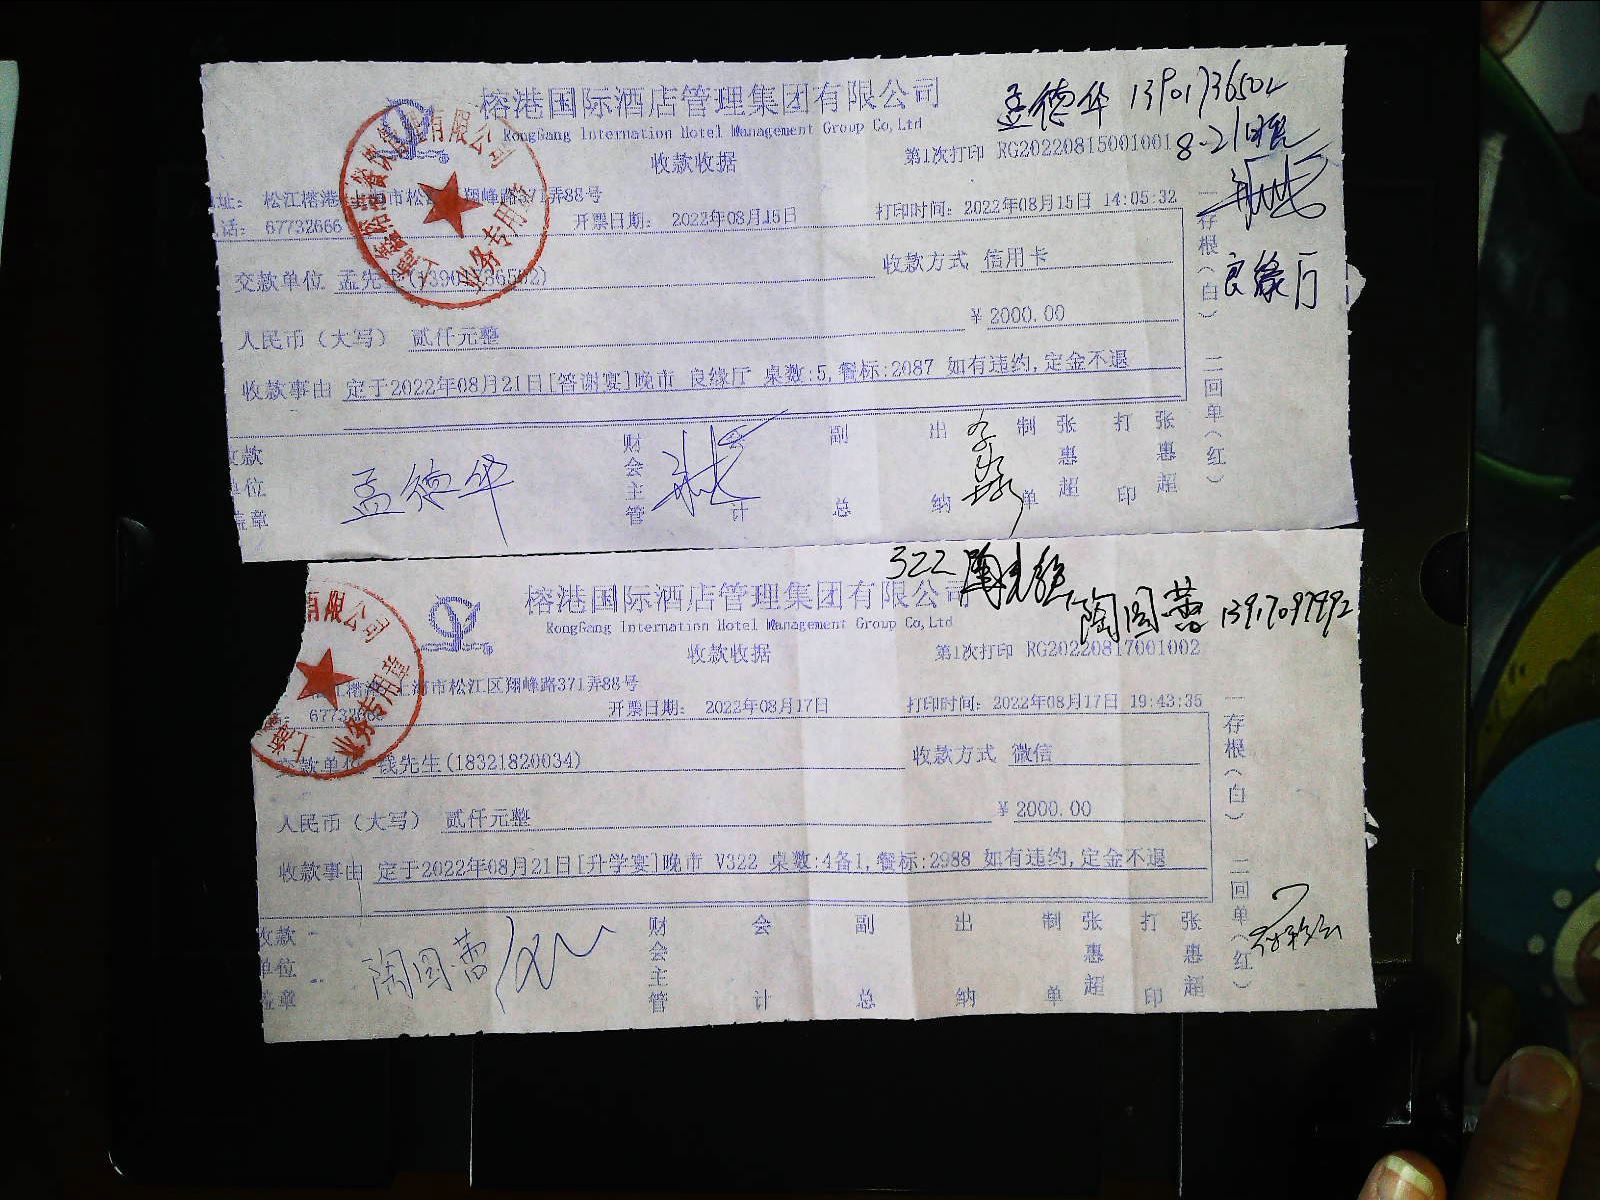 榕港国际酒店管理集团有限公司
RongGang Internation Hotel Management Group Co,Ltd
孟德华 13901736502
收款收据
第1次打印 RG20220815001001
8-21晚
址: 松江榕港 市松 翔峰路371弄88号
话: 67732666
开票日期: 2022年08月15日
打印时间: 2022年08月15日 14:05:32
有限公司
业务专用章
交款单位 孟先生(13901736502)
收款方式 信用卡
良缘厅
人民币（大写） 贰仟元整
¥ 2000.00
收款事由 定于2022年08月21日[答谢宴]晚市 良缘厅 桌数:5,餐标:2087 如有违约,定金不退
一存根(白) 二回单(红)
收款单位盖章
孟德华
财会主管 会计 副总 出纳 制单 张惠超 打印 张惠超
322
榕港国际酒店管理集团有限公司
RongGang Internation Hotel Management Group Co,Ltd
陶国蕾 13917097992
收款收据
第1次打印 RG20220817001002
江榕港 上海市松江区翔峰路371弄88号
67732666
开票日期: 2022年08月17日
打印时间: 2022年08月17日 19:43:35
有限公司
上海
业务专用章
交款单位 钱先生(18321820034)
收款方式 微信
人民币（大写） 贰仟元整
¥ 2000.00
收款事由 定于2022年08月21日[升学宴]晚市 V322 桌数:4备1,餐标:2988 如有违约,定金不退
一存根(白) 二回单(红)
收款单位盖章
陶国蕾
财会主管 会计 副总 出纳 制单 张惠超 打印 张惠超